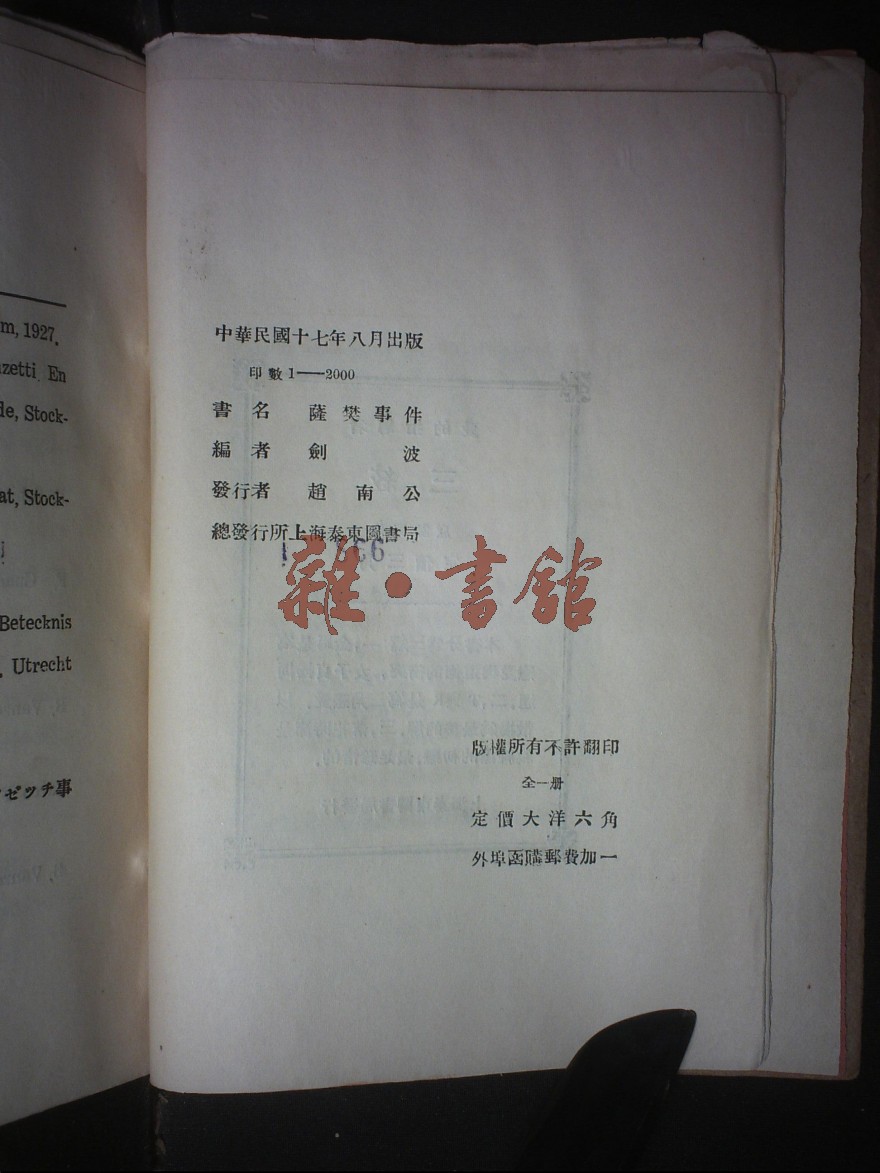 m, 1927.
zetti. En
de, Stock-
at, Stock-
Betecknis
, Utrecht
ゼツチ事
中華民國十七年八月出版
印數1——2000
書名 薩樊事件
編者 劍波
發行者 趙南公
總發行所上海泰東圖書局
雜·書館
版權所有不許翻印
全一册
定價大洋六角
外埠函購郵費加一